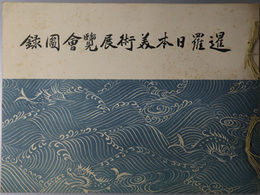 暹羅日本美術展覽會圖錄